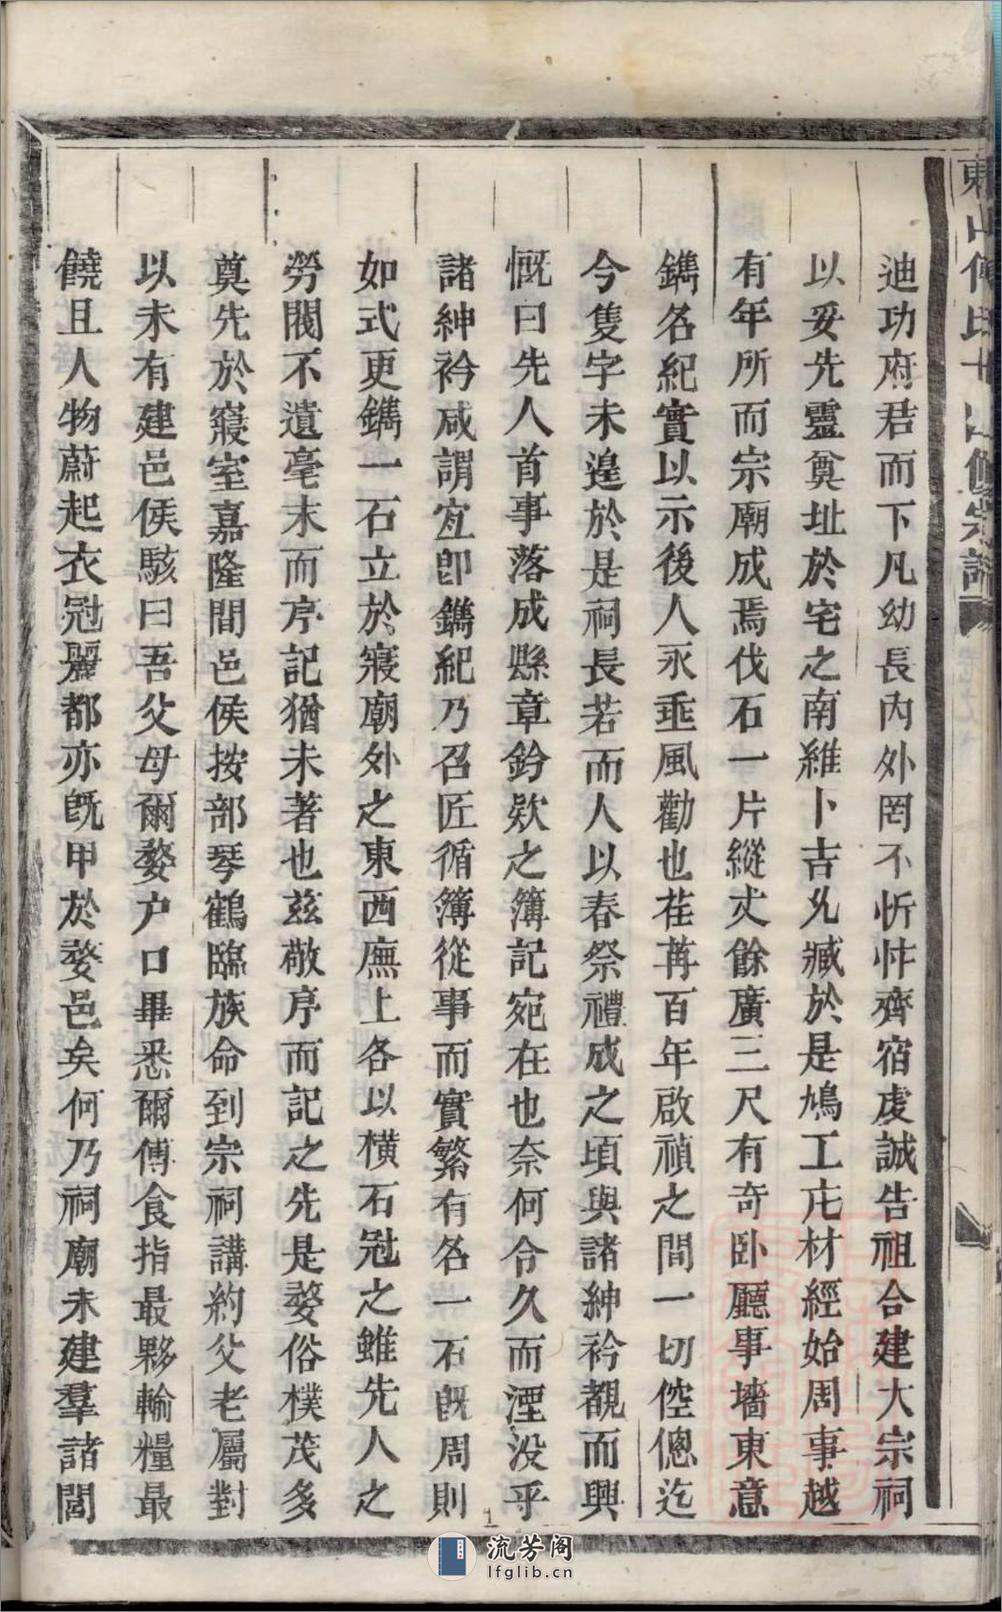 東山何氏
修宗譜
迪功府君而下凡幼長內外罔不忻忭齊宿虔誠告祖合建大宗祠
以妥先靈奠址於宅之南維卜吉允臧於是鳩工庀材經始周事越
有年所而宗廟成焉伐石一片縱丈餘廣三尺有奇卧廳事墻東意
鐫名紀實以示後人永垂風勸也荏苒百年啟禎之間一切倥傯迄
今隻字未遑於是祠長若而人以春祭禮成之頃與諸紳衿覩而興
慨曰先人首事落成縣章鈐欵之簿記宛在也奈何令久而湮没乎
諸紳衿咸謂宐卽鐫紀乃召匠循簿從事而實繁有名一石旣周則
如式更鐫一石立於寢廟外之東西廡上各以橫石冠之雖先人之
勞閥不遺毫末而序記猶未著也兹敬序而記之先是婺俗樸茂多
奠先於寢室嘉隆間邑侯按部琴鶴臨族命到宗祠講約父老屬對
以未有建邑侯駭曰吾父母爾婺户口畢悉爾傅食指最夥輸糧最
饒且人物蔚起衣冠麗都亦旣甲於婺邑矣何乃祠廟未建羣諸閭
流芳阁
lfglib.cn